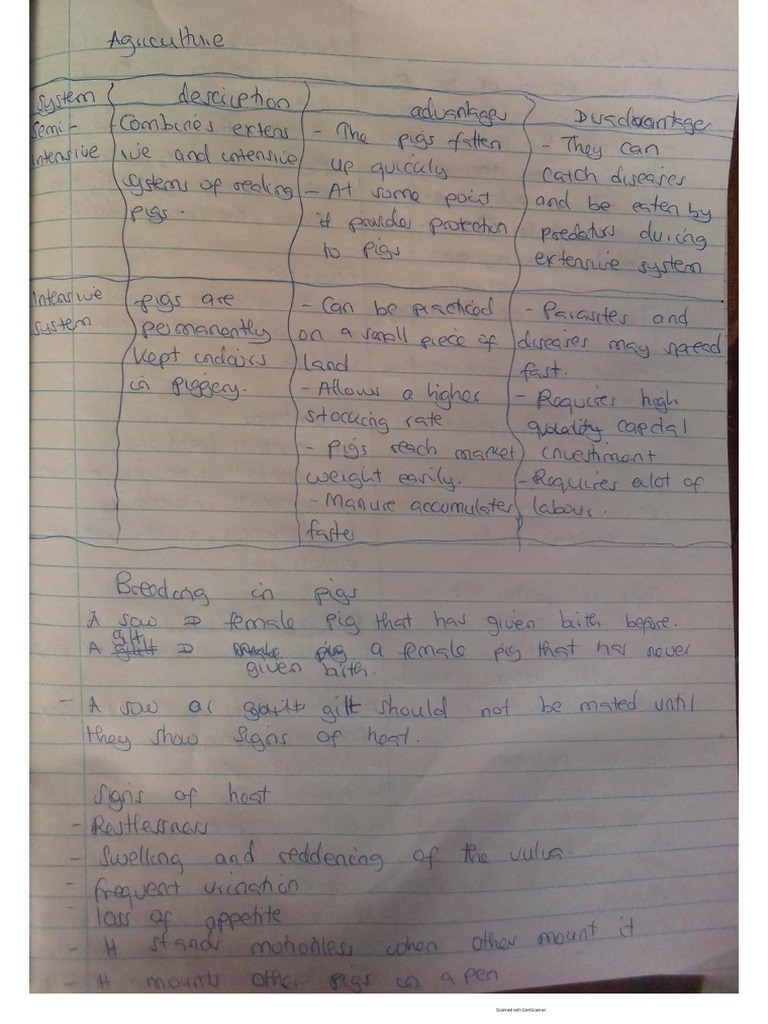 Agriculture
system description advantages Disadvantage
Semi-intensive
Combines extens
ive and intensive
systems of rearing
pigs.
- The pigs fatten
up quickly
- At some point
it provides protection
to pigs
- They can
catch diseases
and be eaten by
predators during
extensive system
Intensive
system
pigs are
permanently
kept indoors
in piggery.
- Can be practiced
on a small piece of
land
- Allows a higher
stocking rate.
- Pigs reach market
weight easily.
- Manure accumulates
faster
- Parasites and
diseases may spread
fast.
- Requires high
quality capital
investment
- Requires alot of
labour.
Breeding in pigs
A sow ⇒ female pig that has given birth before.
A gilt ⇒ a female pig that has never
given birth.
- A sow or gilt should not be mated until
they show signs of heat.
Signs of heat
- Restlessness
- Swelling and reddening of the vulva.
- frequent urination
- loss of appetite
- It stands motionless when other mount it
- It mounts other pigs in a pen.
Scanned with CamScanner